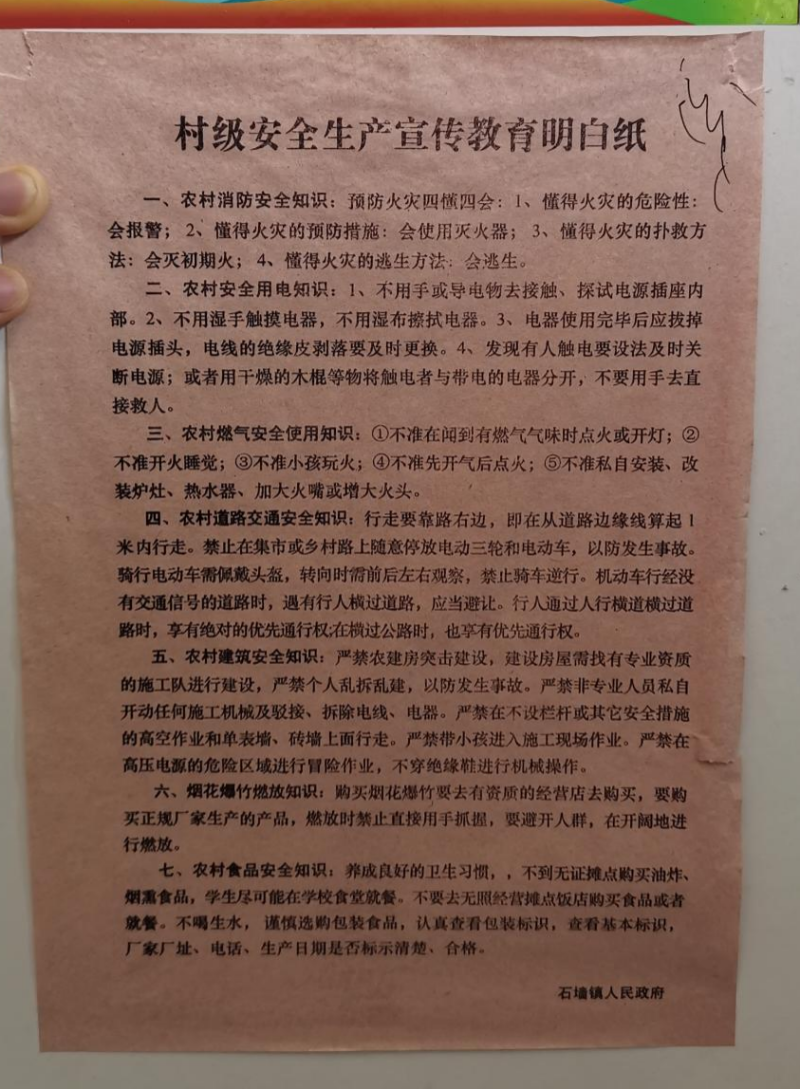 村级安全生产宣传教育明白纸
一、农村消防安全知识：预防火灾四懂四会：1、懂得火灾的危险性：
会报警；2、懂得火灾的预防措施：会使用灭火器；3、懂得火灾的扑救方
法：会灭初期火；4、懂得火灾的逃生方法：会逃生。
二、农村安全用电知识：1、不用手或导电物去接触、探试电源插座内
部。2、不用湿手触摸电器，不用湿布擦拭电器。3、电器使用完毕后应拔掉
电源插头，电线的绝缘皮剥落要及时更换。4、发现有人触电要设法及时关
断电源；或者用干燥的木棍等物将触电者与带电的电器分开，不要用手去直
接救人。
三、农村燃气安全使用知识：①不准在闻到有燃气气味时点火或开灯；②
不准开火睡觉；③不准小孩玩火；④不准先开气后点火；⑤不准私自安装、改
装炉灶、热水器、加大火嘴或增大火头。
四、农村道路交通安全知识：行走要靠路右边，即在从道路边缘线算起1
米内行走。禁止在集市或乡村路上随意停放电动三轮和电动车，以防发生事故。
骑行电动车需佩戴头盔，转向时需前后左右观察，禁止骑车逆行。机动车行经没
有交通信号的道路时，遇有行人横过道路，应当避让。行人通过人行横道横过道
路时，享有绝对的优先通行权;在横过公路时，也享有优先通行权。
五、农村建筑安全知识：严禁农建房突击建设，建设房屋需找有专业资质
的施工队进行建设，严禁个人乱拆乱建，以防发生事故。严禁非专业人员私自
开动任何施工机械及驳接、拆除电线、电器。严禁在不设栏杆或其它安全措施
的高空作业和单表墙、砖墙上面行走。严禁带小孩进入施工现场作业。严禁在
高压电源的危险区域进行冒险作业，不穿绝缘鞋进行机械操作。
六、烟花爆竹燃放知识：购买烟花爆竹要去有资质的经营店去购买，要购
买正规厂家生产的产品，燃放时禁止直接用手抓握，要避开人群，在开阔地进
行燃放。
七、农村食品安全知识：养成良好的卫生习惯，，不到无证摊点购买油炸、
烟熏食品，学生尽可能在学校食堂就餐。不要去无照经营摊点饭店购买食品或者
就餐。不喝生水，谨慎选购包装食品，认真查看包装标识，查看基本标识，
厂家厂址、电话、生产日期是否标示清楚、合格。
石墙镇人民政府